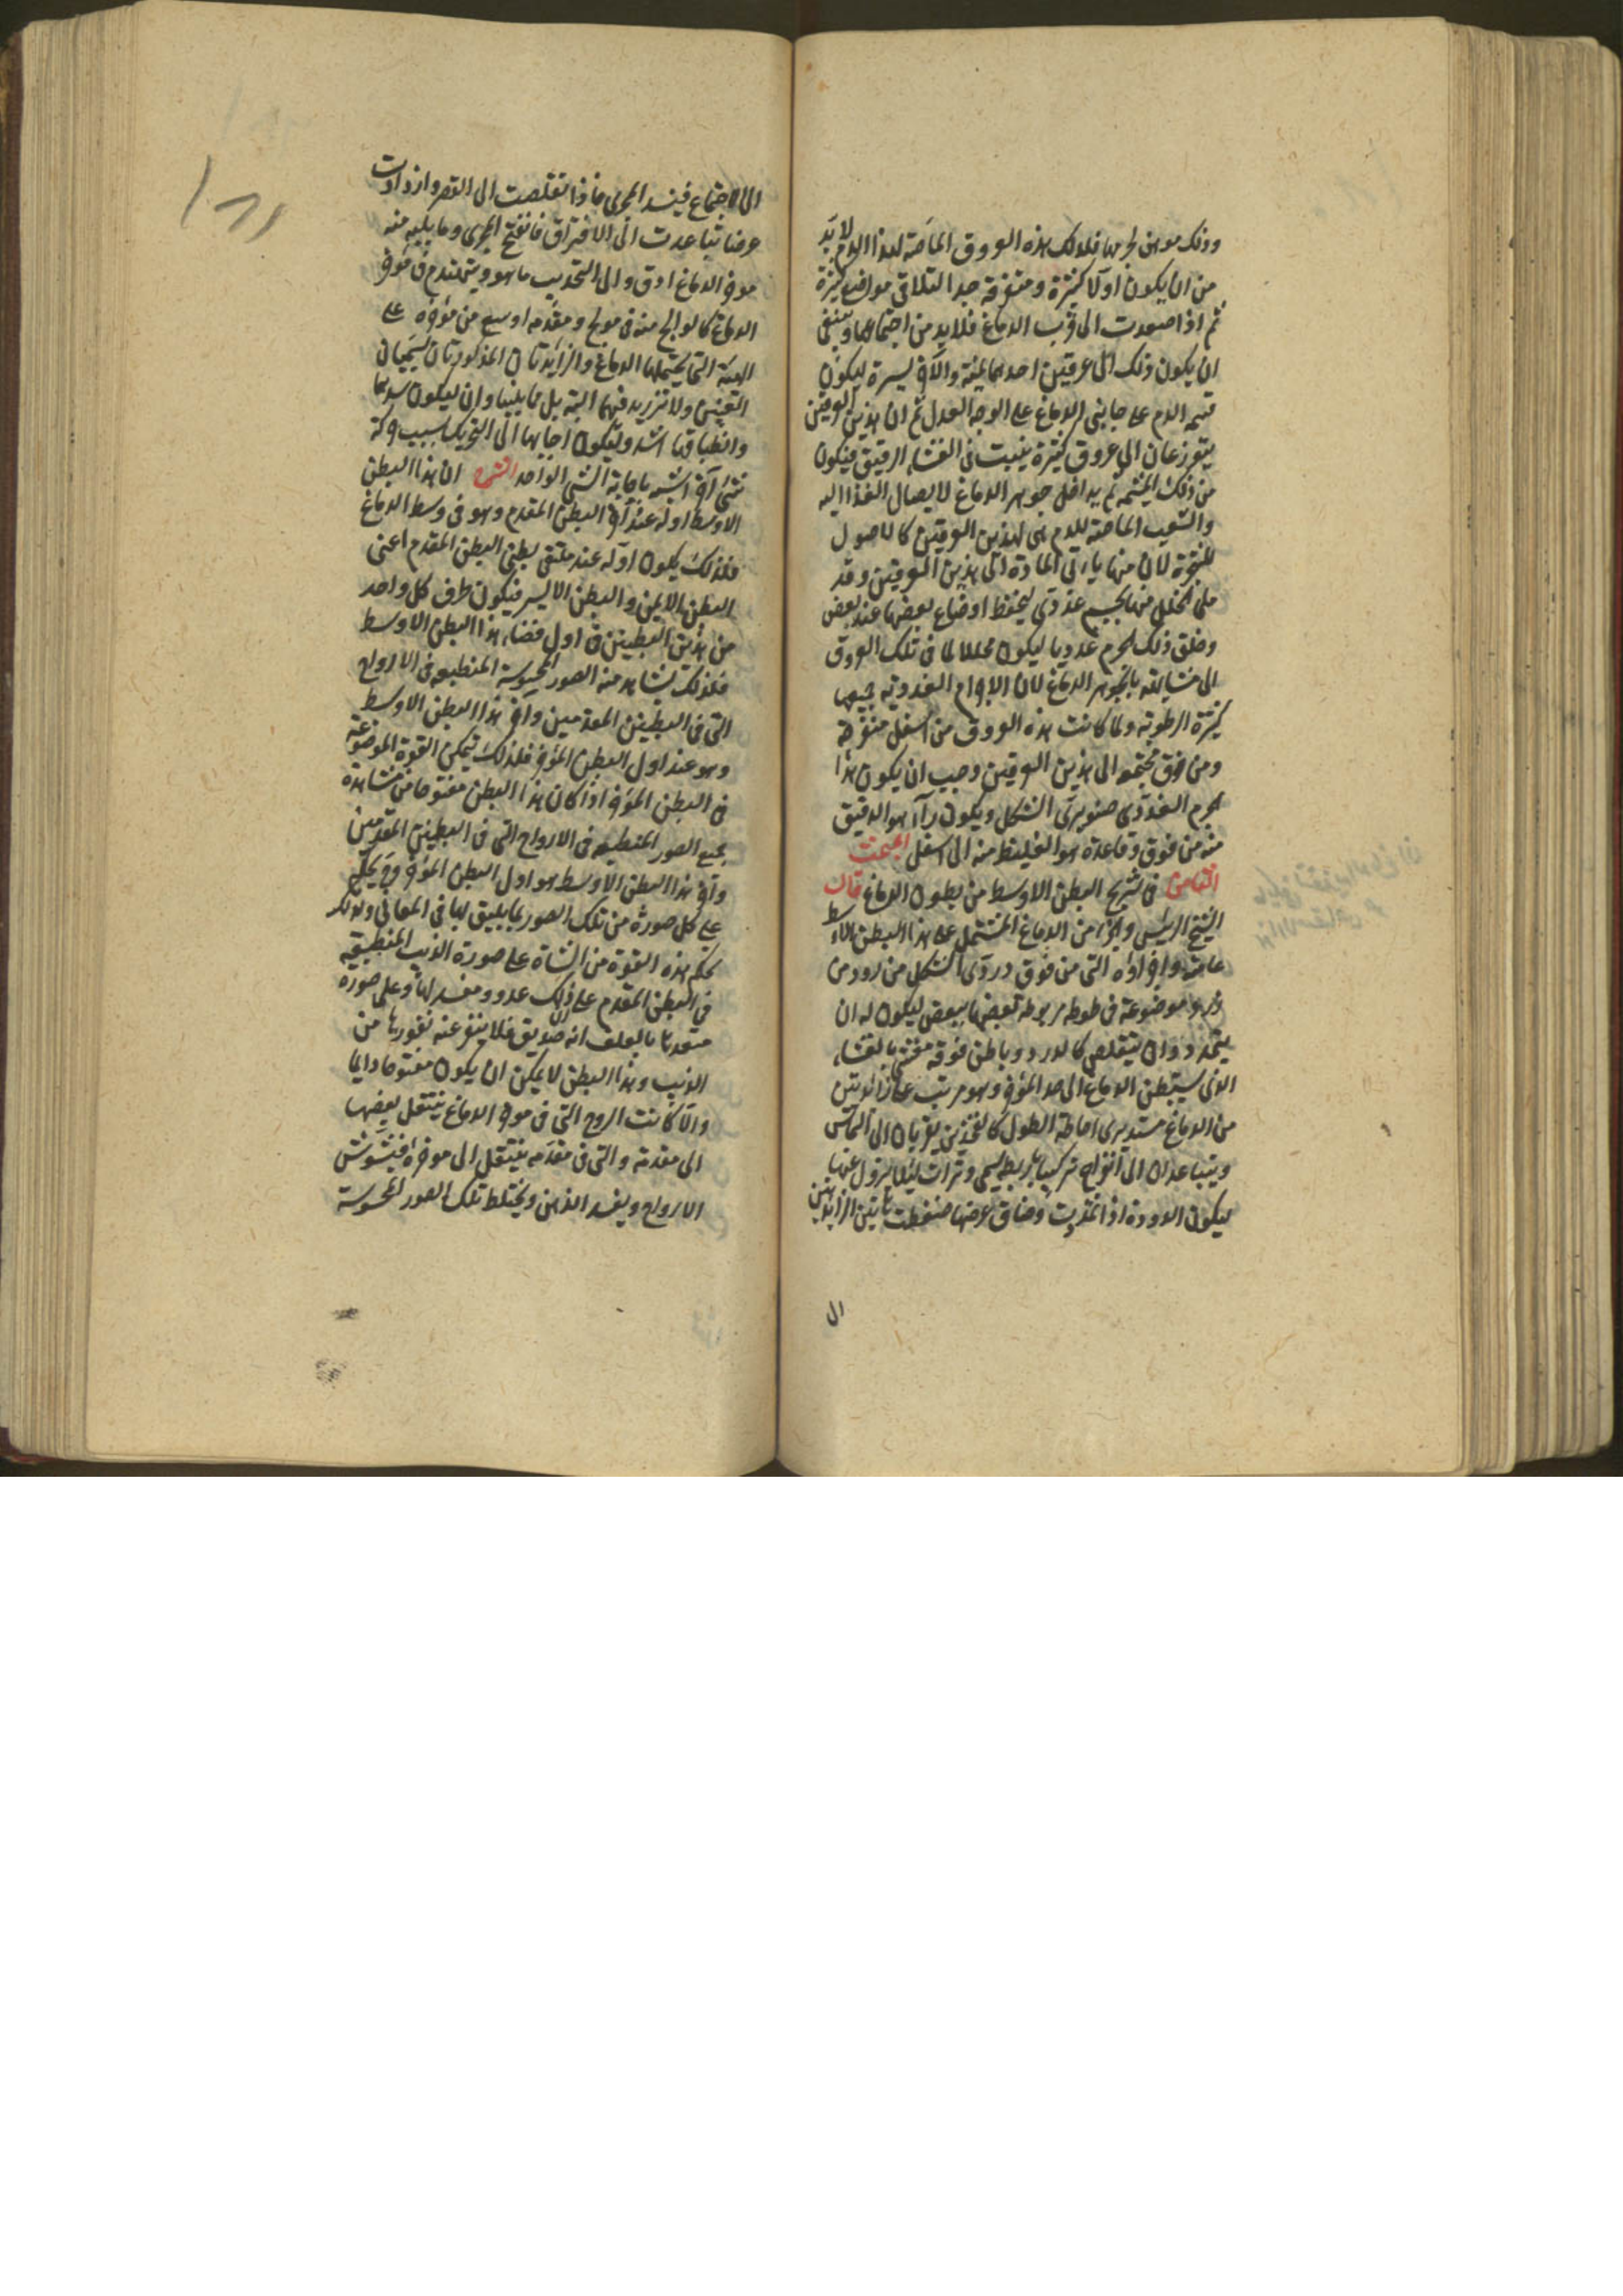 وذلك موهن لجرمها فلذلك هذه العروق الماصة لهذا الدم لا بد
من ان يكون اولا كثيرة ومتفرقة جدا لتلاقى مواضع كثيرة
ثم اذا صعدت الى قرب الدماغ فلا بد من اجتماعها وينبغى
ان يكون ذلك الى عرقين احدهما يمنة والآخر يسرة ليكون
قسمة الدم على جانبى الدماغ على الوجه العدل ثم ان هذين العرقين
يتوزعان الى عروق كثيرة ينبت فى الغشاء الرقيق فيكون
من ذلك المشيمة ثم يداخل جوهر الدماغ لايصال الغذا اليه
والشعب الماصة للدم هى لهذين العرقين كالاصول
للشجرة لان منها يأتى المادة الى هذين العرقين وقد
ملى الخلل منها بجسم غددى ليحفظ اوضاع بعضها عند بعض
وخلق ذلك الجرم غدديا ليكون محللا لما فى تلك العروق
الى مشابهته بالجوهر الدماغ لان الاجرام الغددية جميعها
كثيرة الرطوبة ولما كانت هذه العروق من اسفل متفرقة
ومن فوق مجتمعة الى هذين العرقين وجب ان يكون هذا
الجرم الغددى صنوبرى الشكل ويكون رأسه هو الدقيق
منه من فوق وقاعدته هو الغليظ منه الى اسفل المبحث
الثامن فى تشريح البطن الاوسط من بطون الدماغ قال
الشيخ الرئيس والجزء من الدماغ المشتمل على هذا البطن الاوسط
عامته واجزاؤه التى من فوق دودى الشكل مزرود من
زرد موضوعة فى طوله مربوطة بعضها ببعض ليكون له ان
يتمدد وان يتقلص كالدود وباطن فوقه مغشى بالغشاء
الذى يستبطن الدماغ الى حد المؤخر وهو مرتب على زائدتين
من الدماغ مستديرى احاطة الطول كالفخذين يقربان الى التماس
ويتباعدان الى انفراج تركيبا باربطة يسمى وترات ليلا يزول عنها
ليكون الدودة اذا تمددت وضاق عرضها ضغطت هاتين الزايدتين
الى
الى الاجتماع فينسد المجرى فاذا تقلصت الى القصر وازدادت
عرضا تباعدت الى الافتراق فانفتح المجرى وما يليه منه
موخر الدماغ ادق والى التحديب ما هو ويتهندم فى موخر
الدماغ كالوالج منه فى مولج ومقدمه اوسع من مؤخره على
الهيئة التى يحتملها الدماغ والزايدتان المذكورتان تسميان
العنبتين ولا تزريد فيهما البتة بل ملساوان ليكون سدهما
وانطباقها اشد وليكون اجابتها الى التحريك بسبب حركة
شئ آخر اشبه باجابة الشئ الواحد الشرح ان هذا البطن
الاوسط اوله عند آخر البطن المقدم وهو فى وسط الدماغ
فلذلك يكون اوله عند ملتقى بطنى البطن المقدم اعنى
البطن الايمن والبطن الايسر فيكون طرف كل واحد
من هذين البطنين فى اول فضاء هذا البطن الاوسط
فلذلك تشاهد منه الصور المحسوسة المنطبعة فى الارواح
التى فى البطنين المقدمين وآخر هذا البطن الاوسط
وهو عند اول البطن المؤخر فلذلك تتمكن القوة الموضوعة
فى البطن المؤخر اذا كان هذا البطن مفتوحا من مشاهدة
جميع الصور المنطبعة فى الارواح التى فى البطنين المقدمين
وآخر هذا البطن الاوسط هو اول البطن المؤخر وحينئذ يحكم
على كل صورة من تلك الصور بما يليق بها فى المعانى ولذلك
يحكم هذه القوة من الشاة على صورة الذيب المنطبقة
فى البطن المقدم على ان ذلك عدو ومفسد لها وعلى صورة
متعهدها بالعلف انه صديق فلا ينفر عنه نفورها من
الذيب وهذا البطن لا يمكن ان يكون مفتوحا دايما
والا كانت الروح التى فى موخر الدماغ ينتقل بعضها
الى مقدمه والتى فى مقدمه ينتقل الى موخره فيتشوش
الارواح ويفسد الذهن ويختلط تلك الصور المحسوسة